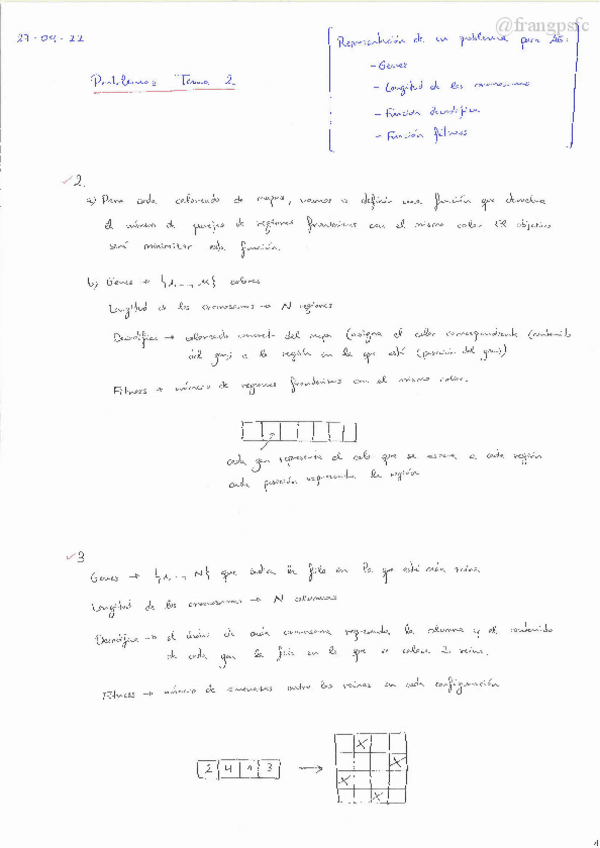 @frangpsfc
27-04-22
Representación de un problema para AG:
- Genes
- Longitud de los cromosomas
- Función decodifica
- Función fitness
Problemas Tema 2
2.
a) Para cada coloreado de mapas, vamos a definir una función que devuelva
el número de parejas de regiones fronterizas con el mismo color. El objetivo
será minimizar esta función.
b) Genes → {1, ..., M} colores
Longitud de los cromosomas → N regiones
Decodifica → coloreado del mapa (asigna el color correspondiente (contenido
del gen) a la región en la que está (posición del gen))
Fitness → número de regiones fronterizas con el mismo color.
cada gen representa el color que se asigna a cada región
cada posición representa la región
3
Genes → {1, ..., N} que indica la fila en la que está cada reina
Longitud de los cromosomas → N columnas
Decodifica → el índice de cada cromosoma representa la columna y el contenido
de cada gen la fila en la que se coloca la reina.
Fitness → número de amenazas entre las reinas en cada configuración
2 4 1 3 →
X
X
X
X